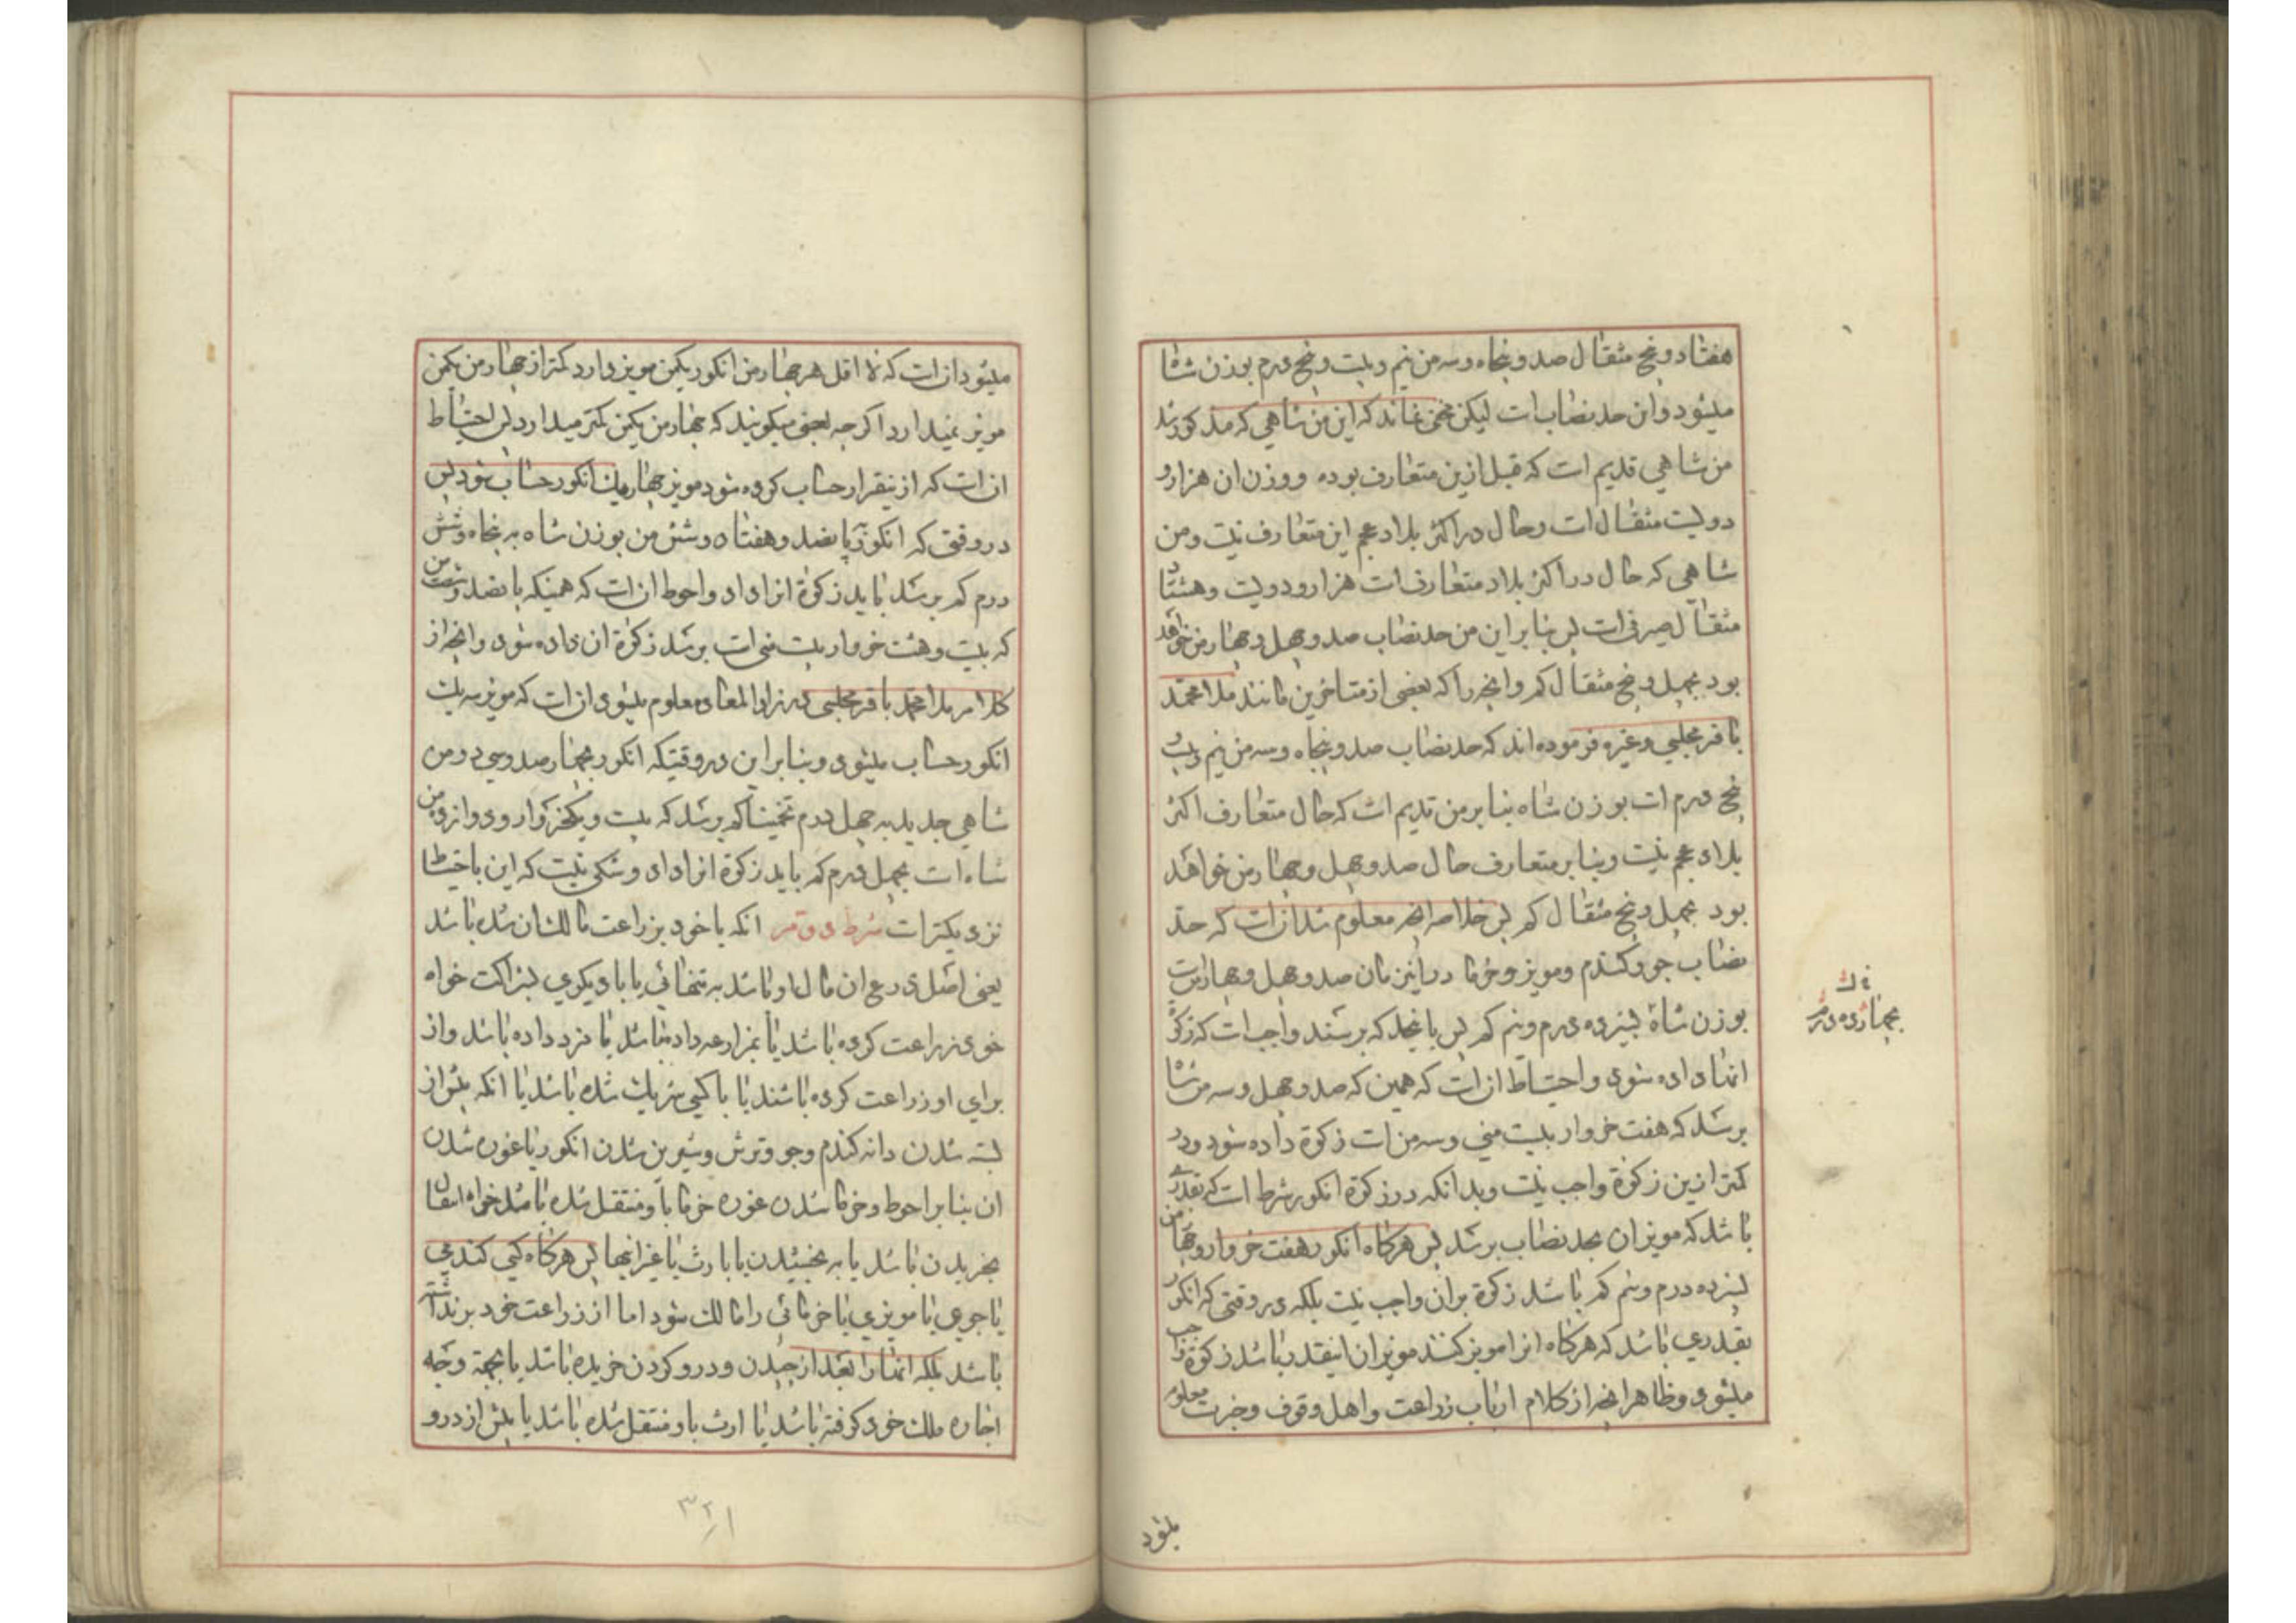 هفتاد و پنج مثقال صد و پنجاه و سه من نیم و بیست و پنج درم بوزن شاه
میشود و این حد نصاب است لیکن مخفی نماند که این من شاهی که مذکور شد
من شاهی قدیم است که قبل ازین متعارف بوده و وزن ان هزار و
دویست مثقال است و حال در اکثر بلاد عجم این متعارف نیست و من
شاهی که حال در اکثر بلاد متعارف است هزار و دویست و هشتاد
مثقال صیرفی است پس بنا بر این من حد نصاب صد و چهل و چهار من خواهد
بود بچهل و پنج مثقال کم و انچه را که بعضی از متاخرین مانند ملا محمد
باقر مجلسی و غیره فرموده اند که حد نصاب صد و پنجاه و سه من نیم و بیست و
پنج درم است بوزن شاه بنا بر من قدیم است که حال متعارف اکثر
بلاد عجم نیست و بنا بر متعارف حال صد و چهل و چهار من خواهد
بود بچهل و پنج مثقال کم پس خلاصه انچه معلوم شد ان است که حد
نصاب جو و کندم و مویز و خرما در این زمان صد و چهل و چهار من است
بوزن شاه بنیزده درم و نیم کم پس باینحد که برسند واجب است که زکوة
انها داده شود و احتیاط ان است که همین که صد و چهل و سه من شاه
برسد که هفت خروار بیست منی و سه من است زکوة داده شود و در
کمتر ازین زکوة واجب نیست و بدانکه در زکوة انکور شرط است که بقدری
باشد که مویز ان بحد نصاب برسد پس هرکاه انکور هفت خروار و چهار من
بنیزده درم و نیم کم باشد زکوة بر ان واجب نیست بلکه در وقتی که انکور
بقدری باشد که هرکاه انرا مویز کنند مویز ان اینقدر باشد زکوة واجب
میشود و ظاهرا انچه از کلام ارباب زراعت و اهل وقوف و خبرت معلوم
بچهارده درم
میشود
میشود ان است که لا اقل هر چهار من انکور یکمن مویز دارد کمتر از چهار من یکمن
مویز نمیدارد اکرچه بعضی میکویند که چهار من یکمن کمتر میدارد لیکن احتیاط
ان است که از نیقرار حساب کرده شود مویز چهار یک انکور حساب شود پس
در وقتی که انکور پانصد و هفتاد و شش من بوزن شاه به پنجاه و شش
درم کم برسد باید زکوة انرا داد و احوط ان است که همینکه پانصد و شصت من
که بیست و هشت خروار بیست منی است برسد زکوة ان داده شود و انچه از
کلام ملا محمد باقر مجلسی در زاد المعاد معلوم میشود ان است که مویز سه یک
انکور حساب میشود و بنا بر این در وقتیکه انکور بچهار صد و سی و دو من
شاهی جدید به چهل درم تخمینا کم برسد که بیست و یکخروار و دوازده من
شاه است بچهل درم کم باید زکوة انرا داد و شکی نیست که این باحتیاط
نزدیکتر است شرط دوم انکه باخود بزراعت مالک ان شده باشد
یعنی اصل زرع ان مال او باشد به تنهائی یا با دیکری بشراکت خواه
خود زراعت کرده باشد یا بمزارعه داده باشد یا مزد داده باشد و از
برای او زراعت کرده باشند یا با کسی شریک شده باشد یا انکه پیش از
بسته شدن دانه کندم و جو و ترش و شیرین شدن انکور یا غوره شدن
ان بنا بر احوط و خرما شدن غوره خرما باو منتقل شده باشد خواه انتقال
بخریدن باشد یا به بخشیدن یا بارث یا غیر اینها پس هرکاه کسی کندمی
یا جوی یا مویزی یا خرمائی را مالک شود اما از زراعت خود برنداشته
باشد بلکه انها را بعد از چیدن و درو کردن خریده باشد یا بجهة وجه
اجاره ملک خود کرفته باشد یا ارث باو منتقل شده باشد یا پیش از درو
۳۲۱